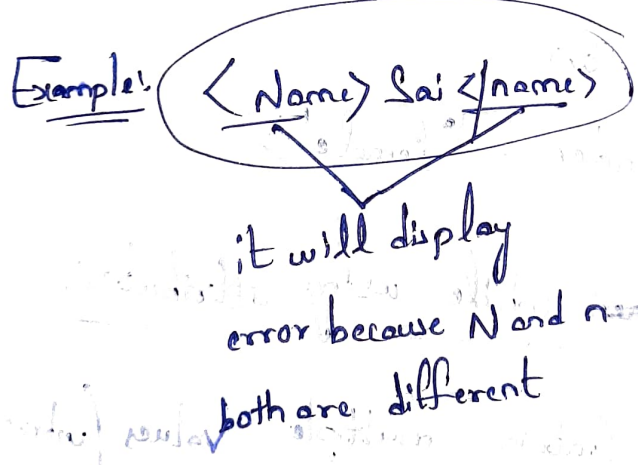 Example: <Name> Sai </name>
it will display
error because N and n
both are different